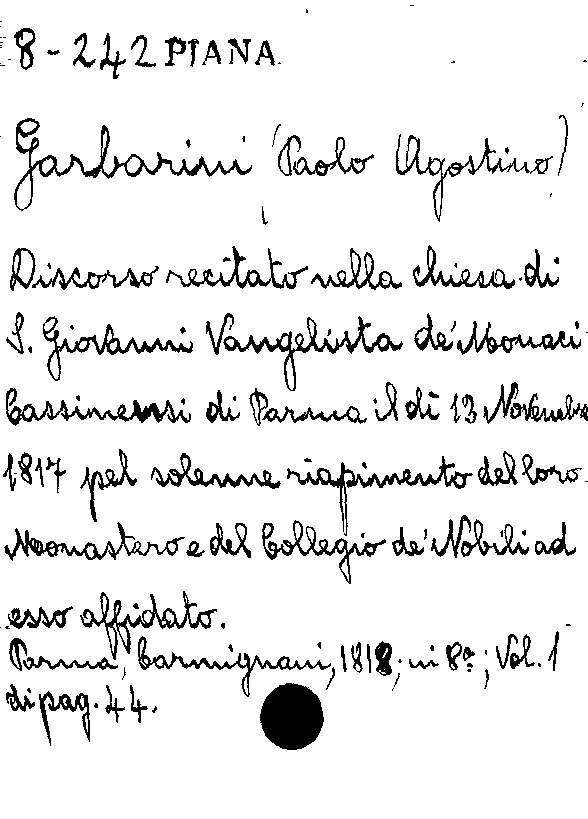 8-242 PIANA
Garbarini (Paolo Agostino)
Discorso recitato nella chiesa di
S. Giovanni Vangelista de' Monaci
Cassinensi di Parma il dì 13 Novembre
1817 pel solenne riapimento del loro
Monastero e del Collegio de' Nobili ad
esso affidato.
Parma, Carmignani, 1818; in 8º; Vol. 1
di pag. 44.